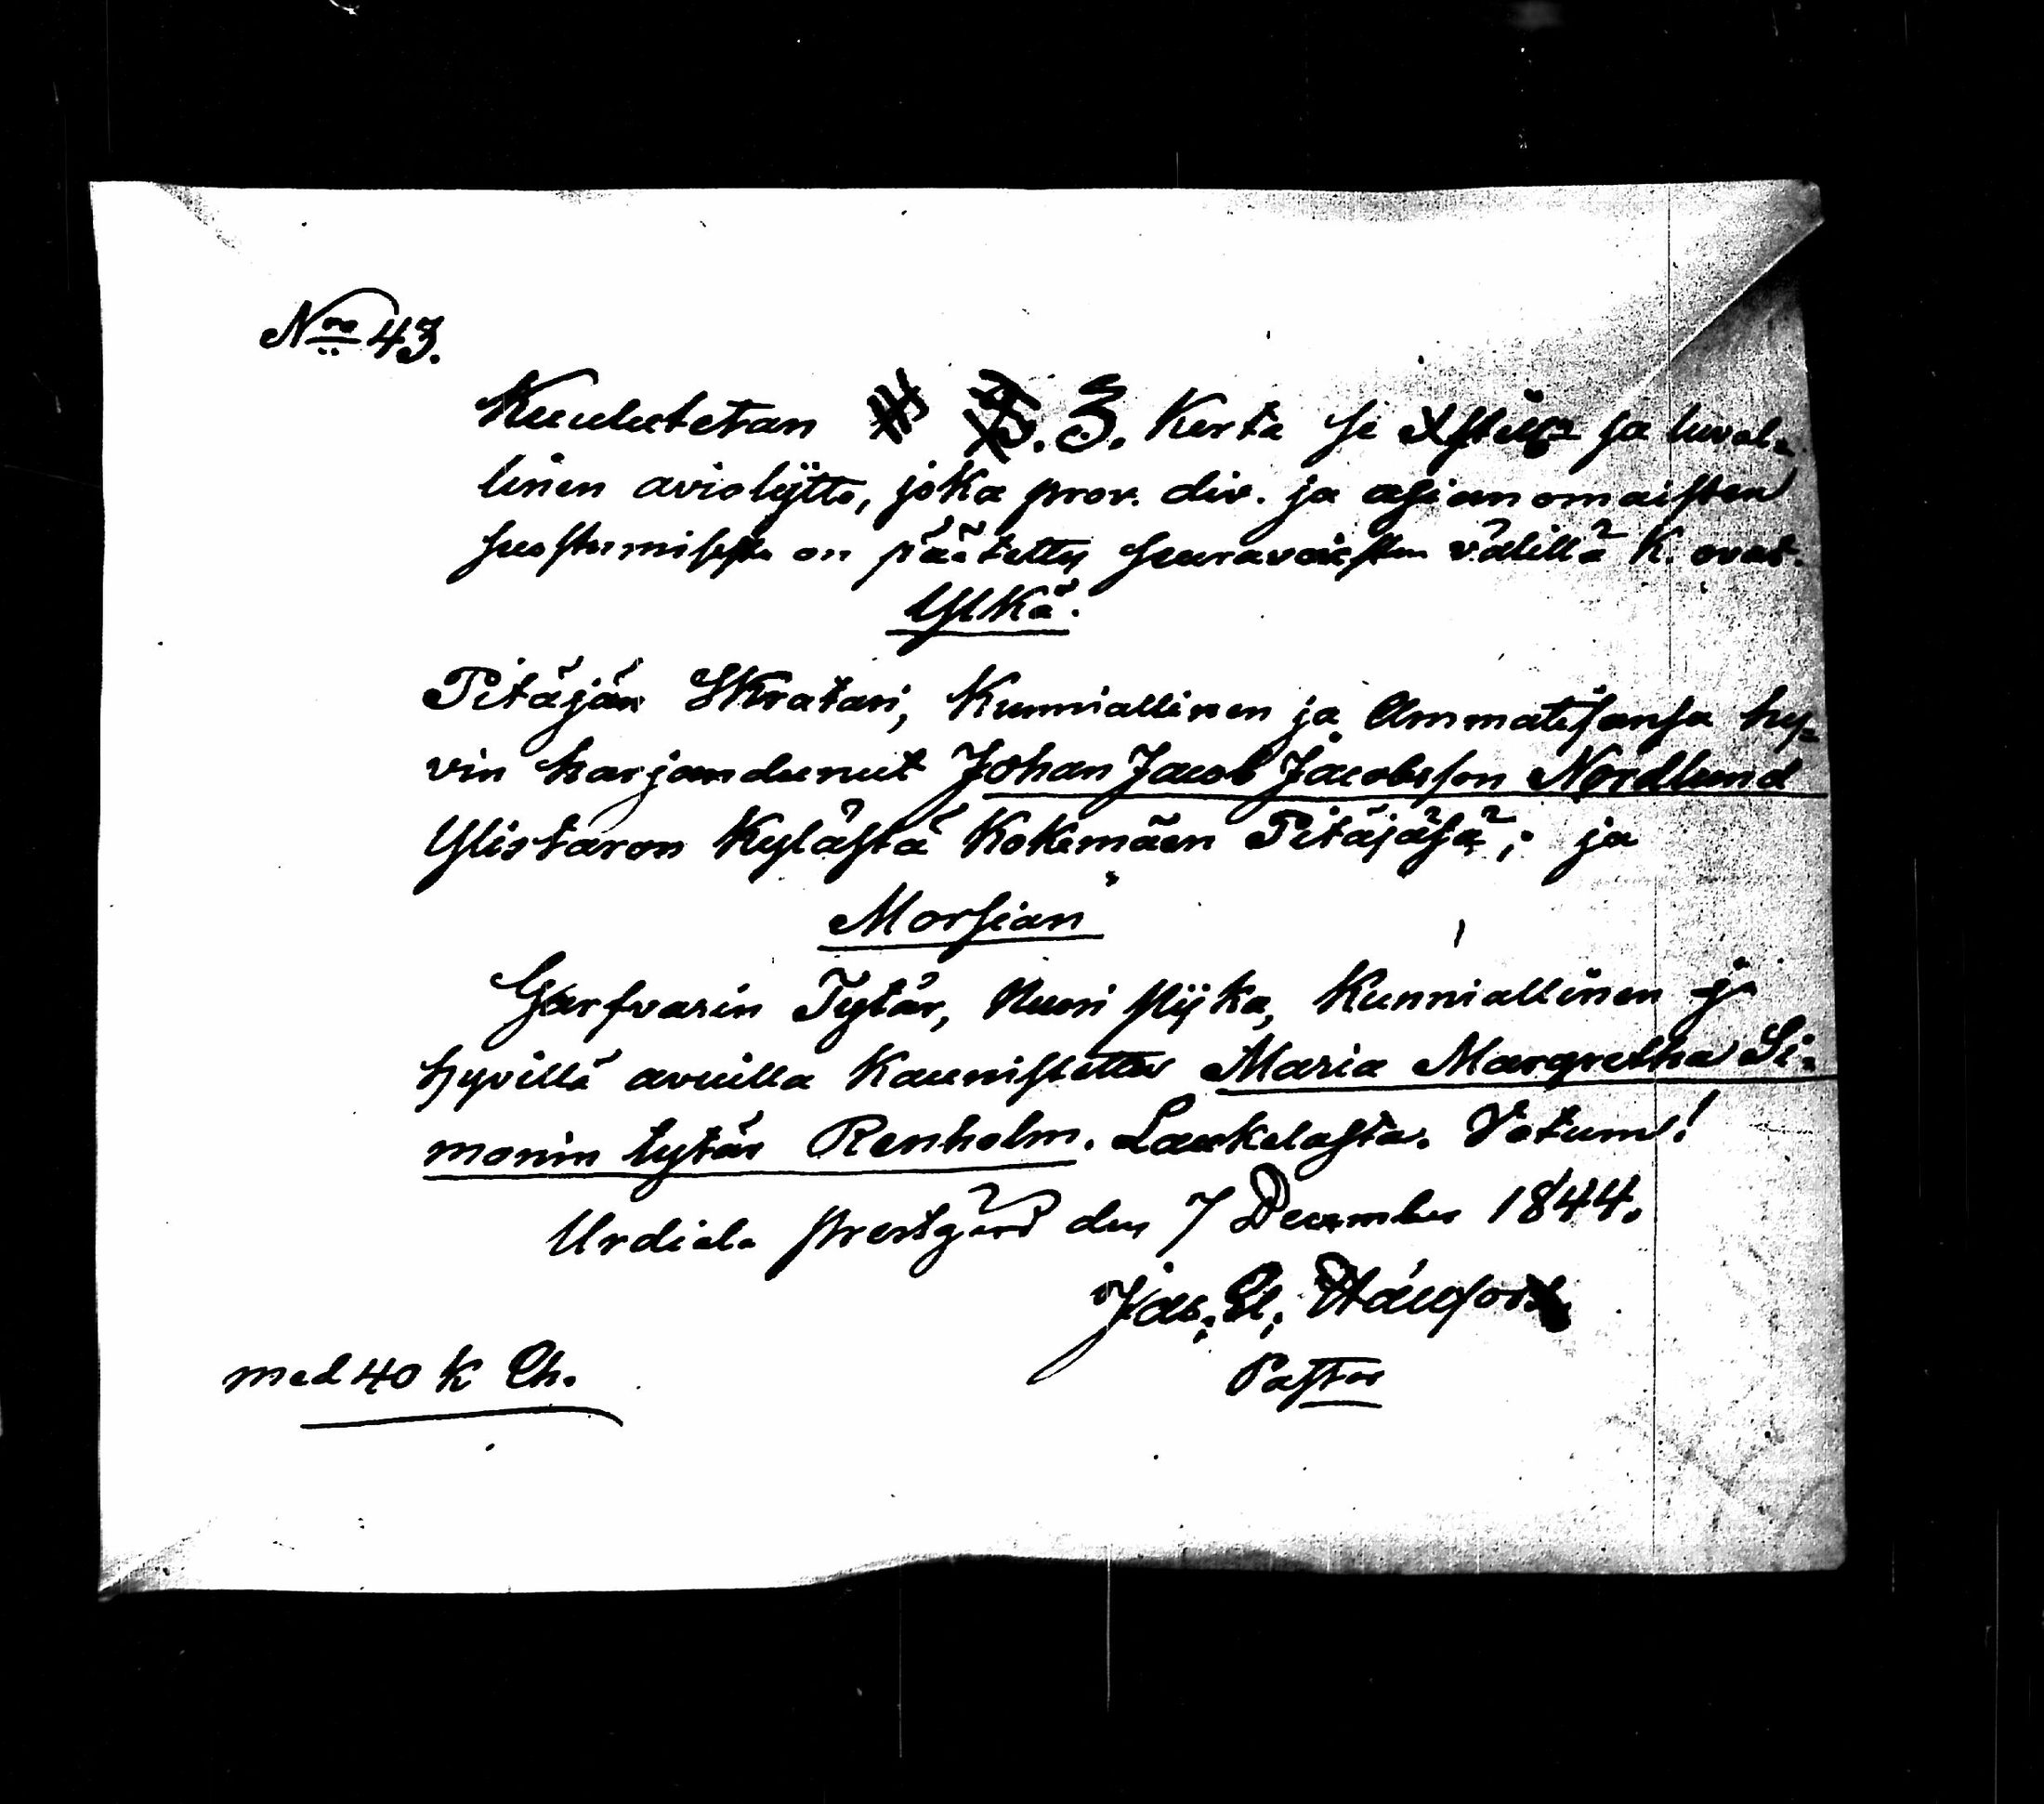 Nro 43.
Kuulutetan 3. Kerta se Xstilinen ja luval-
linen aviolijtto, joka prov. div. ja asianomaisten
suostumisesta on päätetty seuravaisten välillä K. ovat.
Ylkä.
Pitäjän Skratari, Kunniallinen ja Ammatisansa hy-
vin harjandunut Johan Jacob Jacobsson Nordlund
Ylistaron Kylästä Kokemäen Pitäjäsä; ja
Morsian
Garfvarin Tytär, Nuori Pijka, Kunniallinen ja
hyvillä avuilla Kaunistettu Maria Margretha Si-
monin tytär Renholm. Laukelasta. Votum!
Urdiala Prestgård den 7 December 1844.
Pastor
med 40 k Ch.